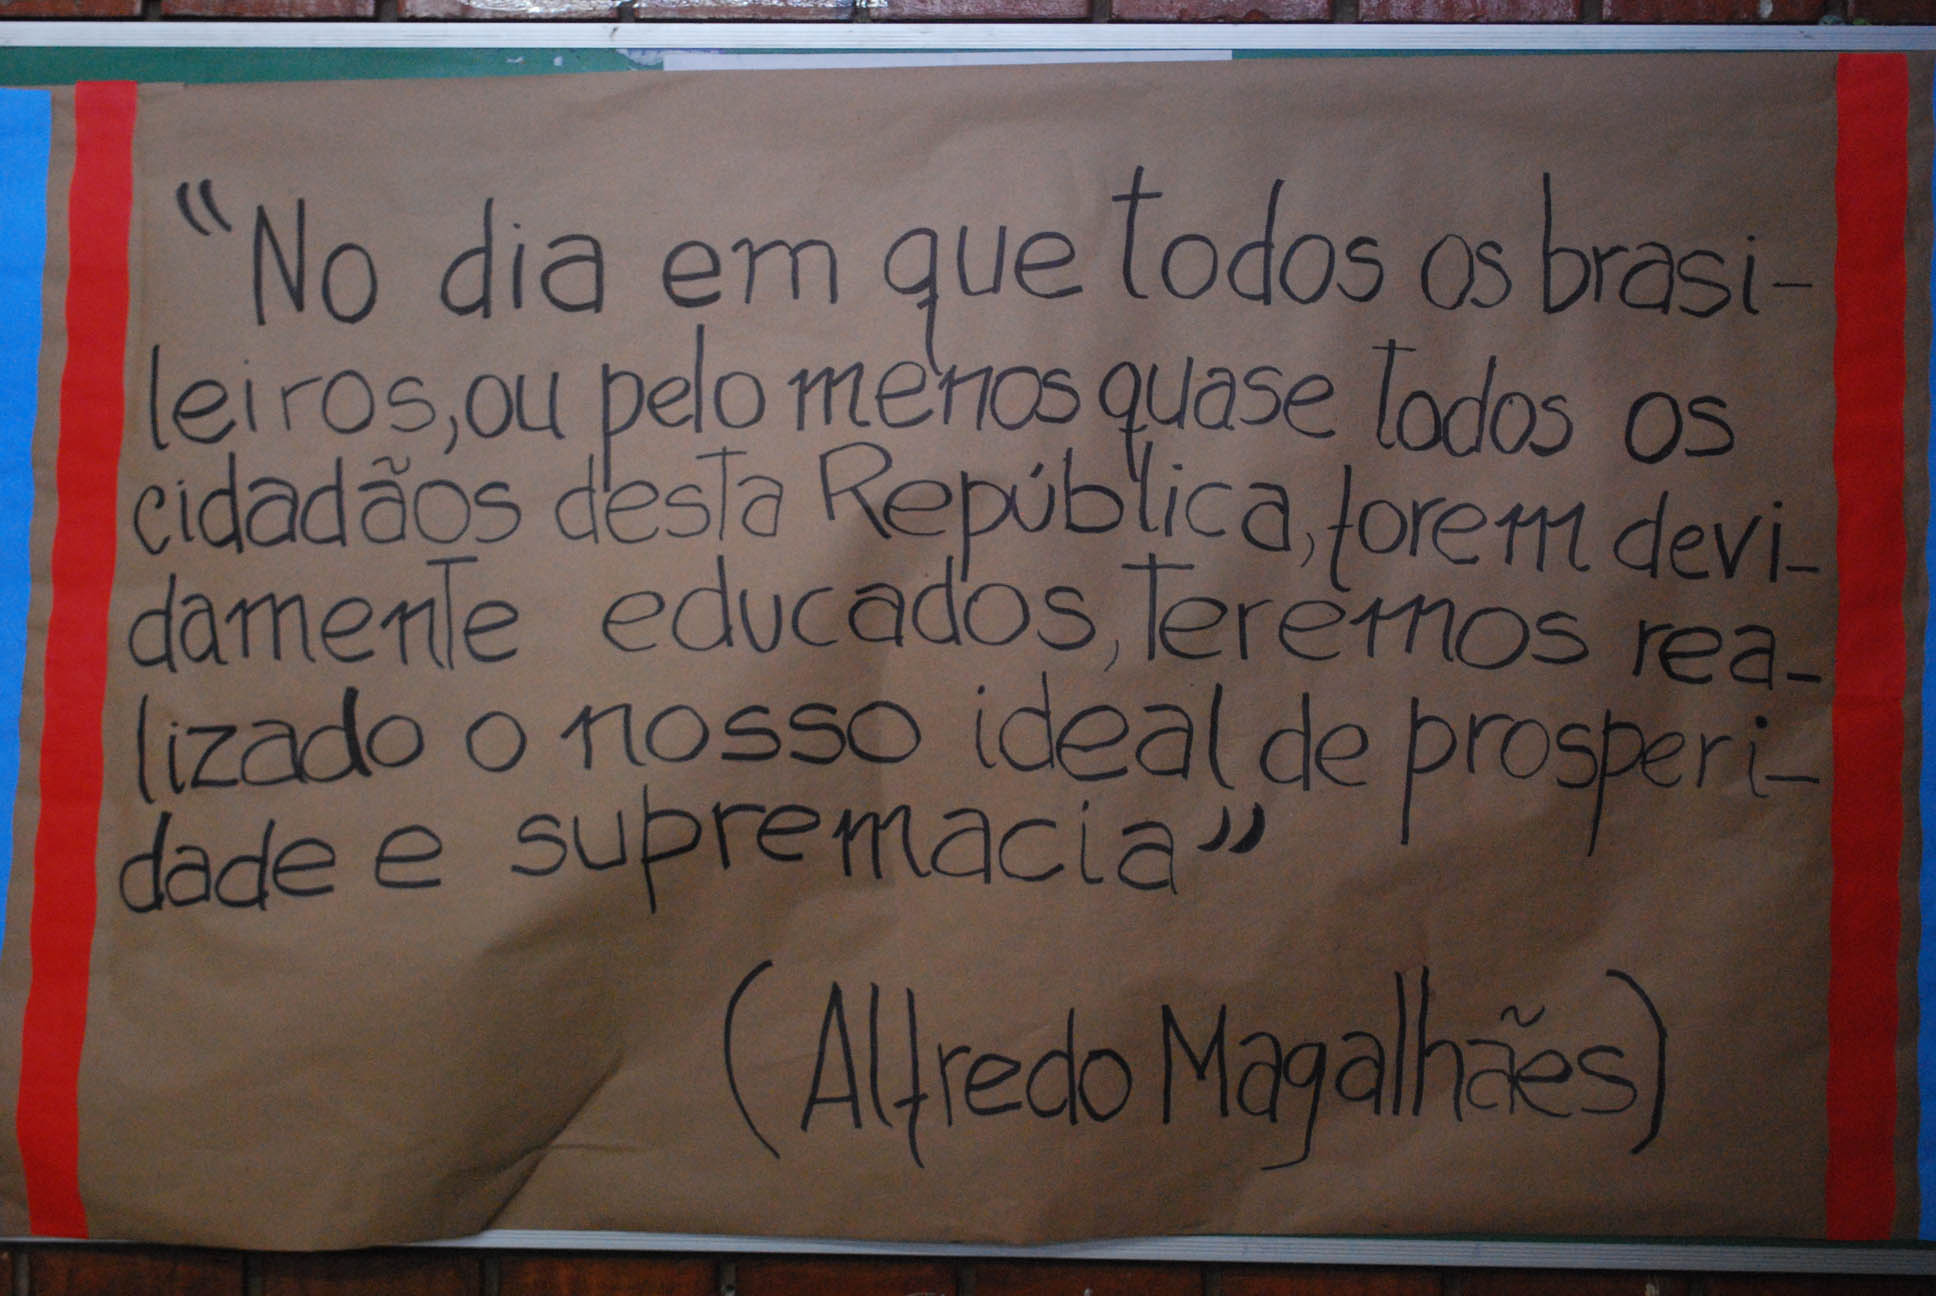 “No dia em que todos os brasi-
leiros, ou pelo menos quase todos os
cidadãos desta República, forem devi-
damente educados, teremos rea-
lizado o nosso ideal de prosperi-
dade e supremacia”
(Alfredo Magalhães)